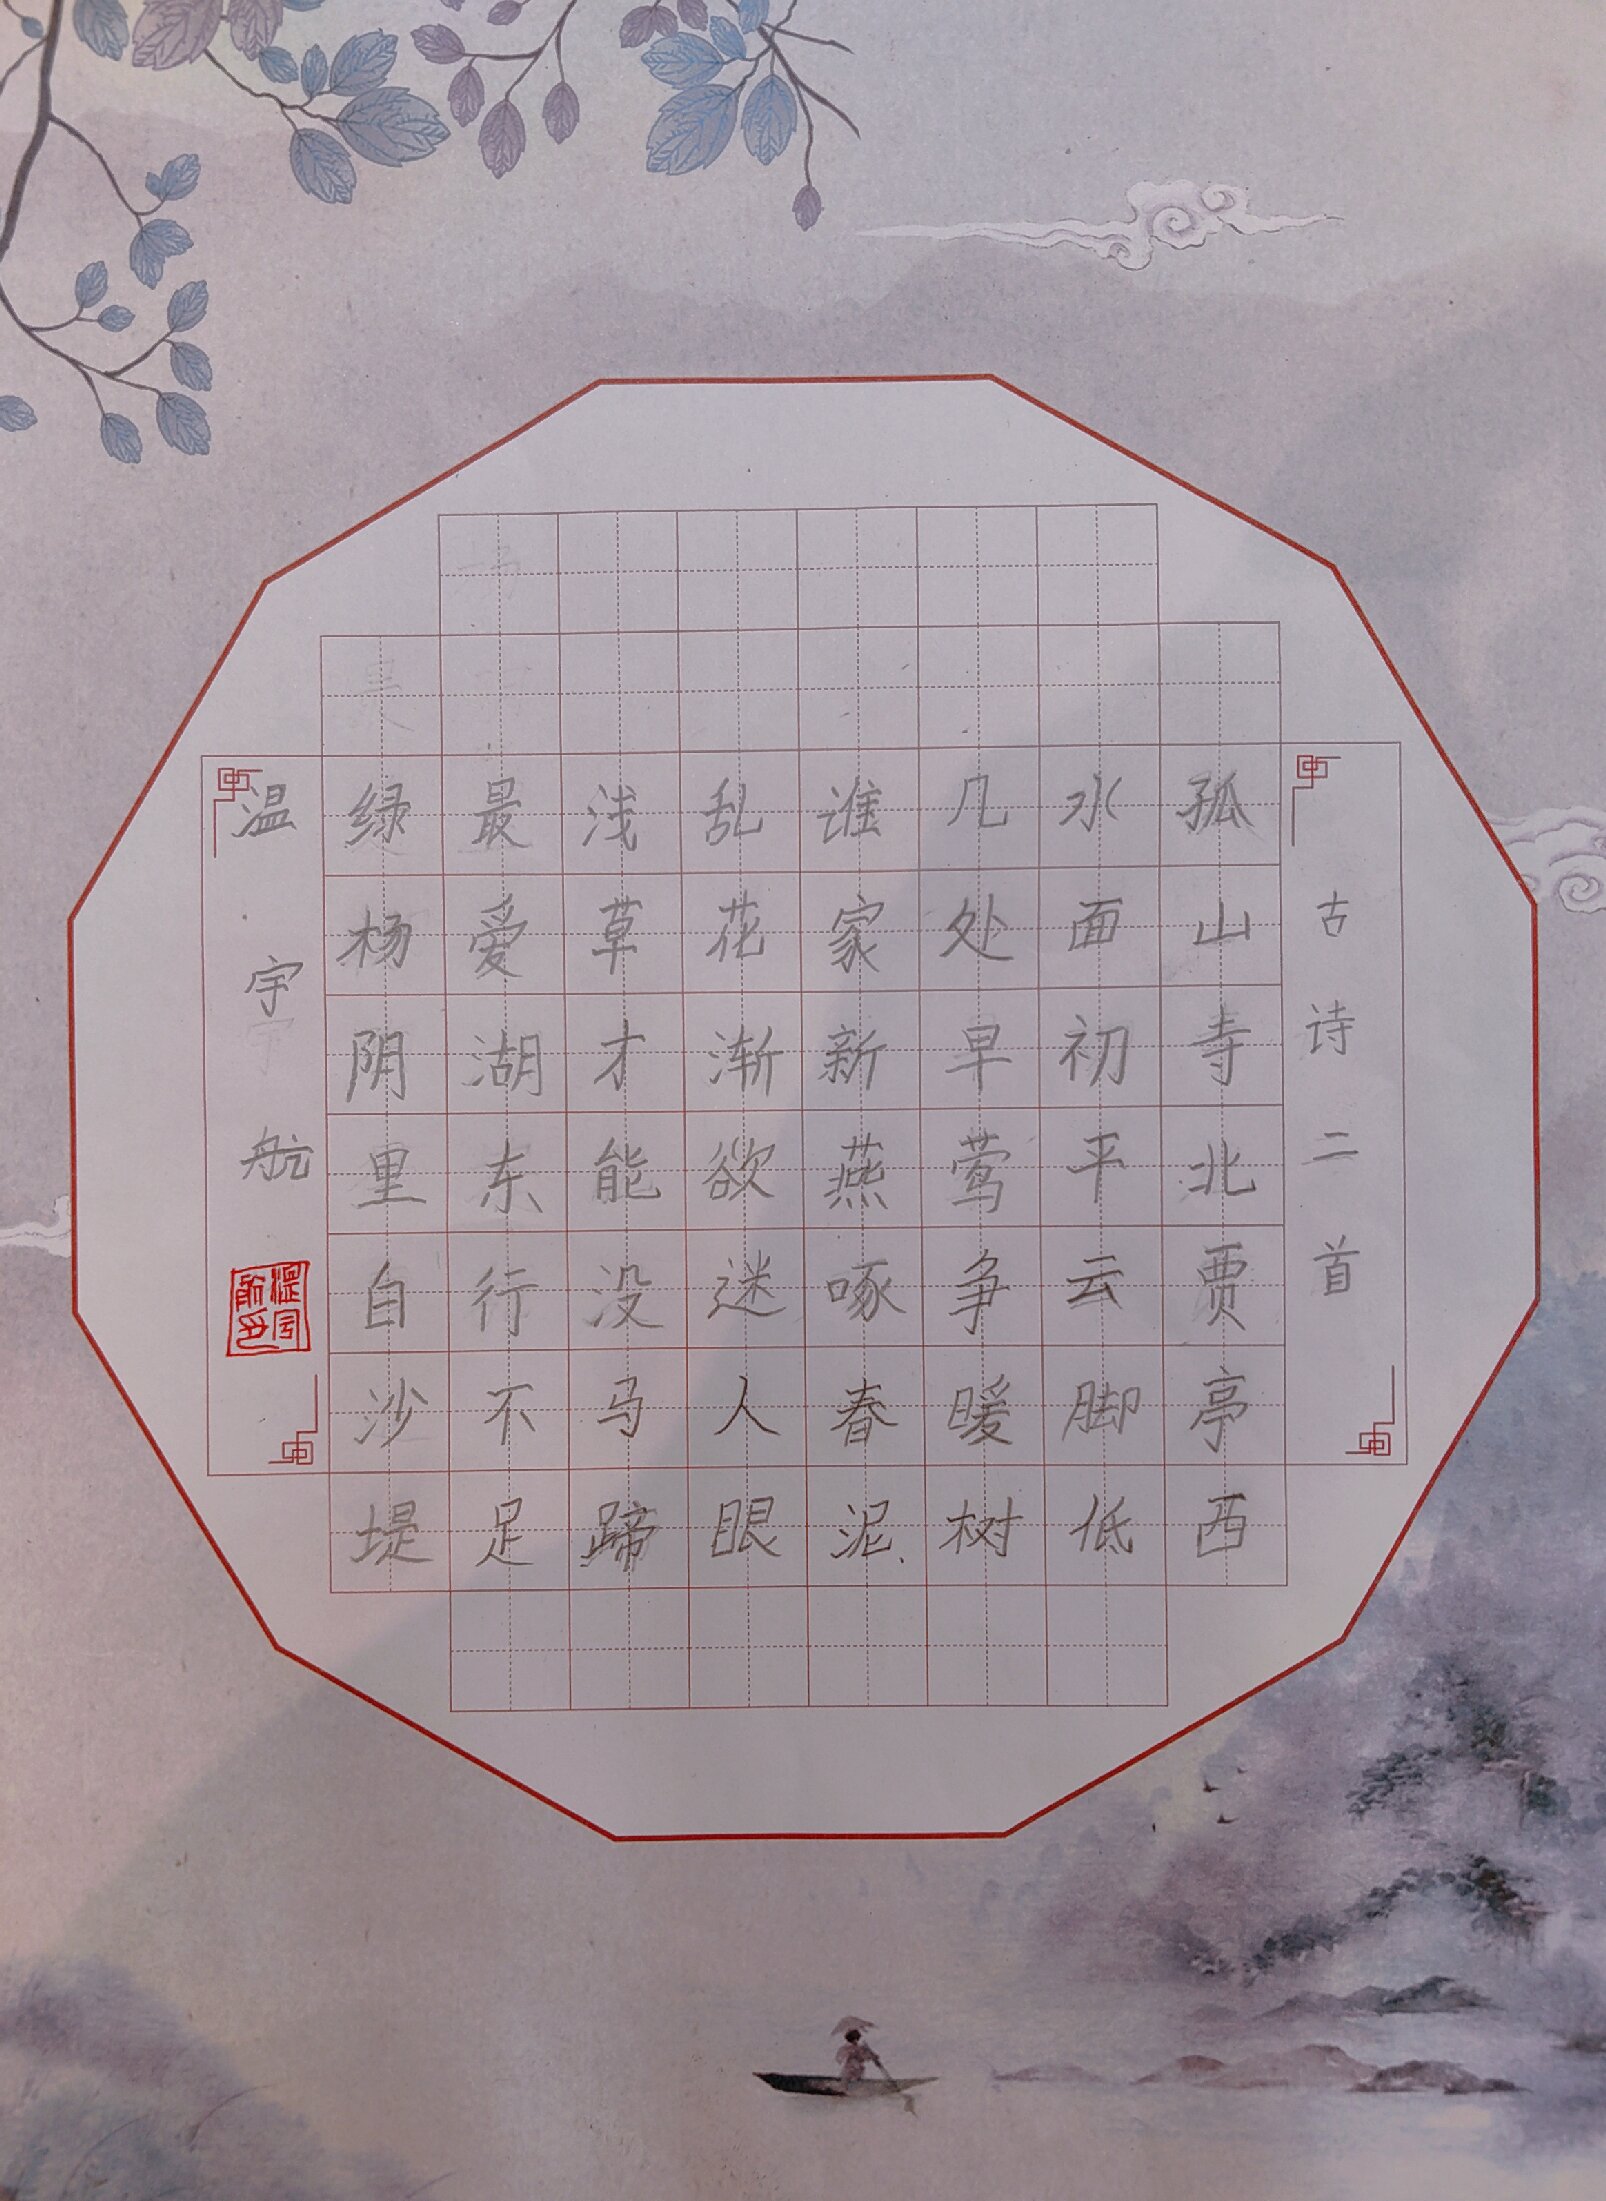 古诗二首
孤山寺北贾亭西
水面初平云脚低
几处早莺争暖树
谁家新燕啄春泥
乱花渐欲迷人眼
浅草才能没马蹄
最爱湖东行不足
绿杨阴里自沙堤
温宇航